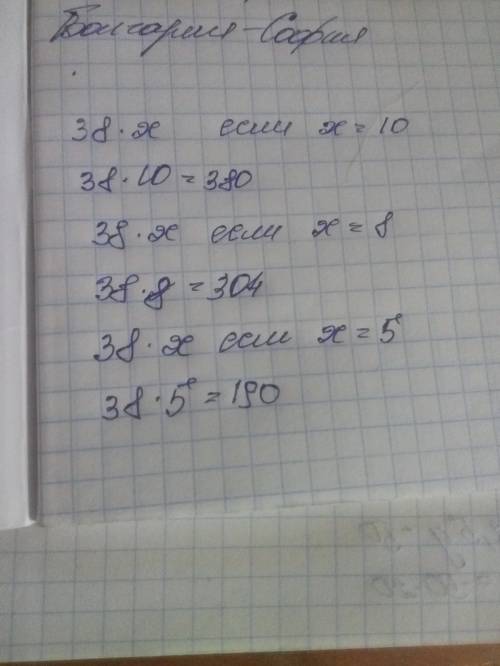 Болгария-София
38·x если x=10
38·10=380
38·x если x=8
38·8=304
38·x если x=5
38·5=190